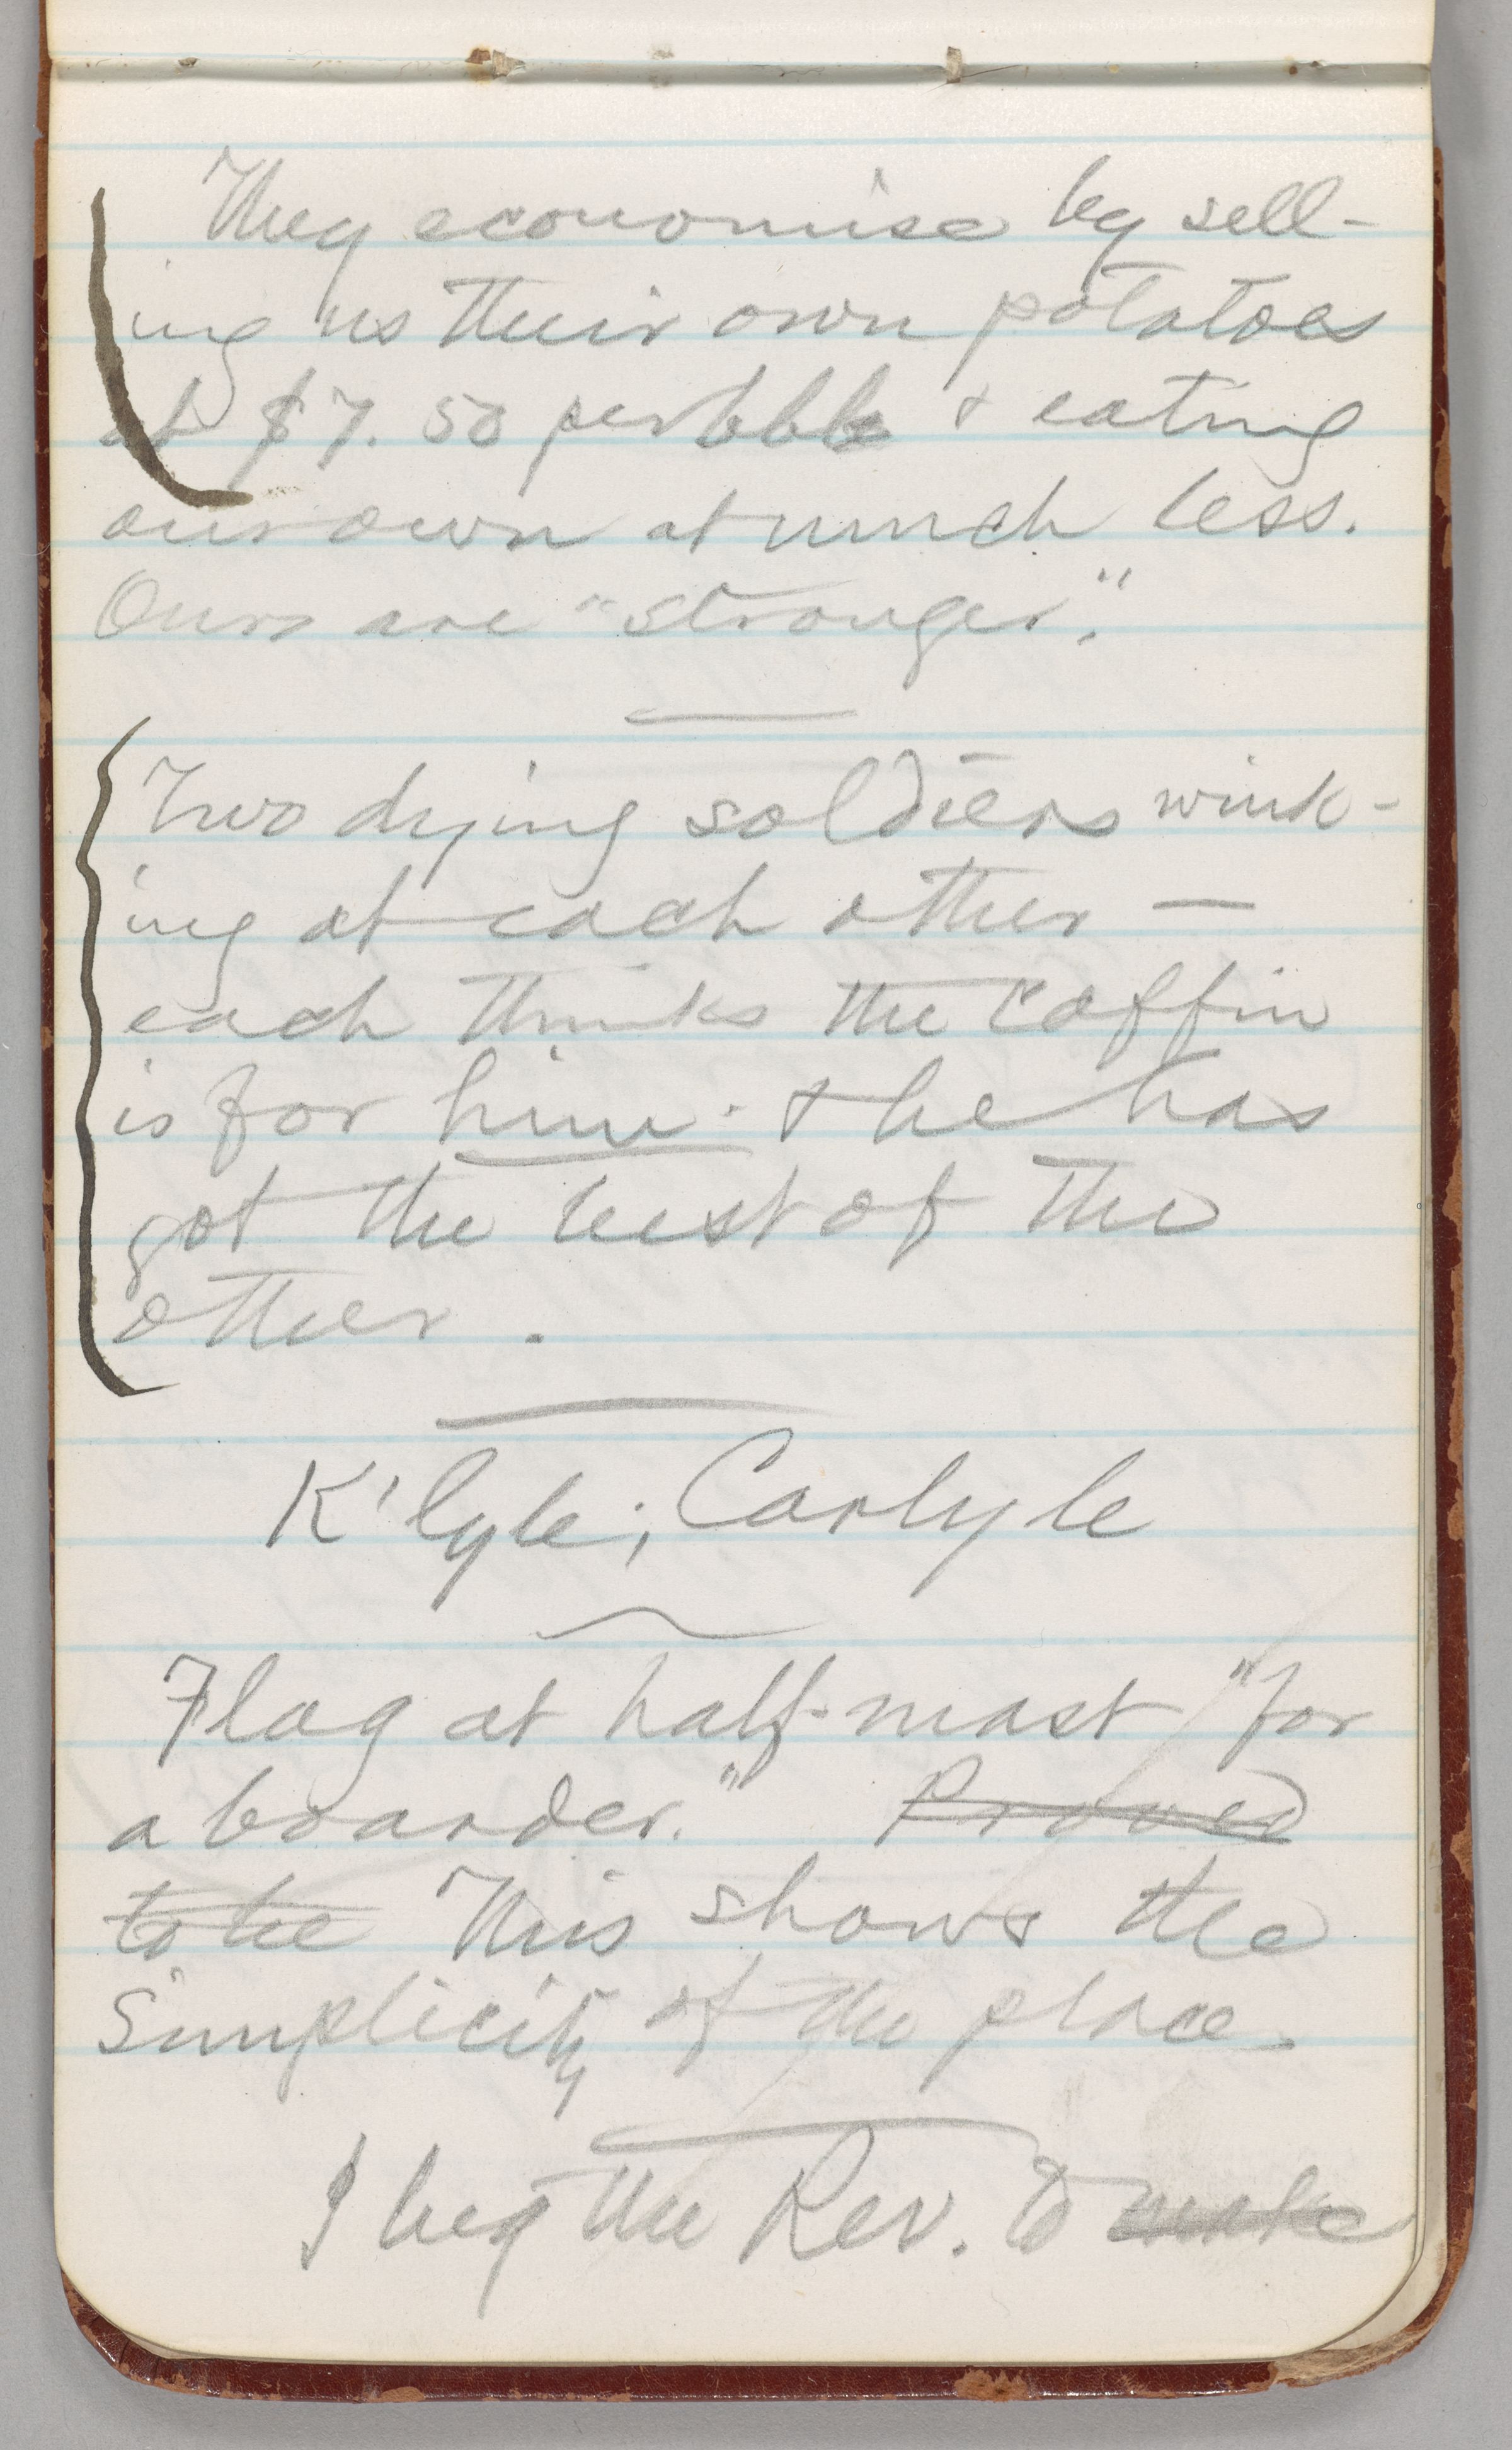 They economise by sell-
ing us their own potatoes
at $7.50 per bbl & eating
our own at much less.
Ours are "stronger."
Two dying soldiers wink-
ing at each other —
each thinks the coffin
is for him & he has
got the best of the
other.
K'lyle; Carlyle
Flag at half-mast "for
a boarder." Proved
to be This shows the
simplicity of the place.
I beg the Rev. to make